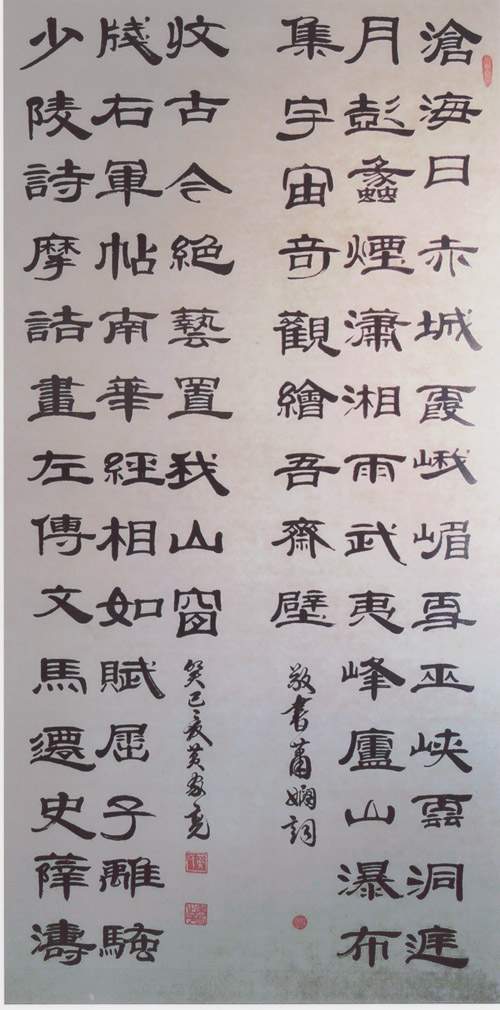 滄海日赤城霞峨嵋雪巫峽雲洞庭
月彭蠡煙瀟湘雨武夷峰廬山瀑布
集宇宙奇觀繪吾齋壁
敬書蕭嫻詞
少陵詩摩詰畫左傳文馬遷史薛濤
牋右軍帖南華經相如賦屈子離騷
收古今絕藝置我山窗
癸巳夏黄